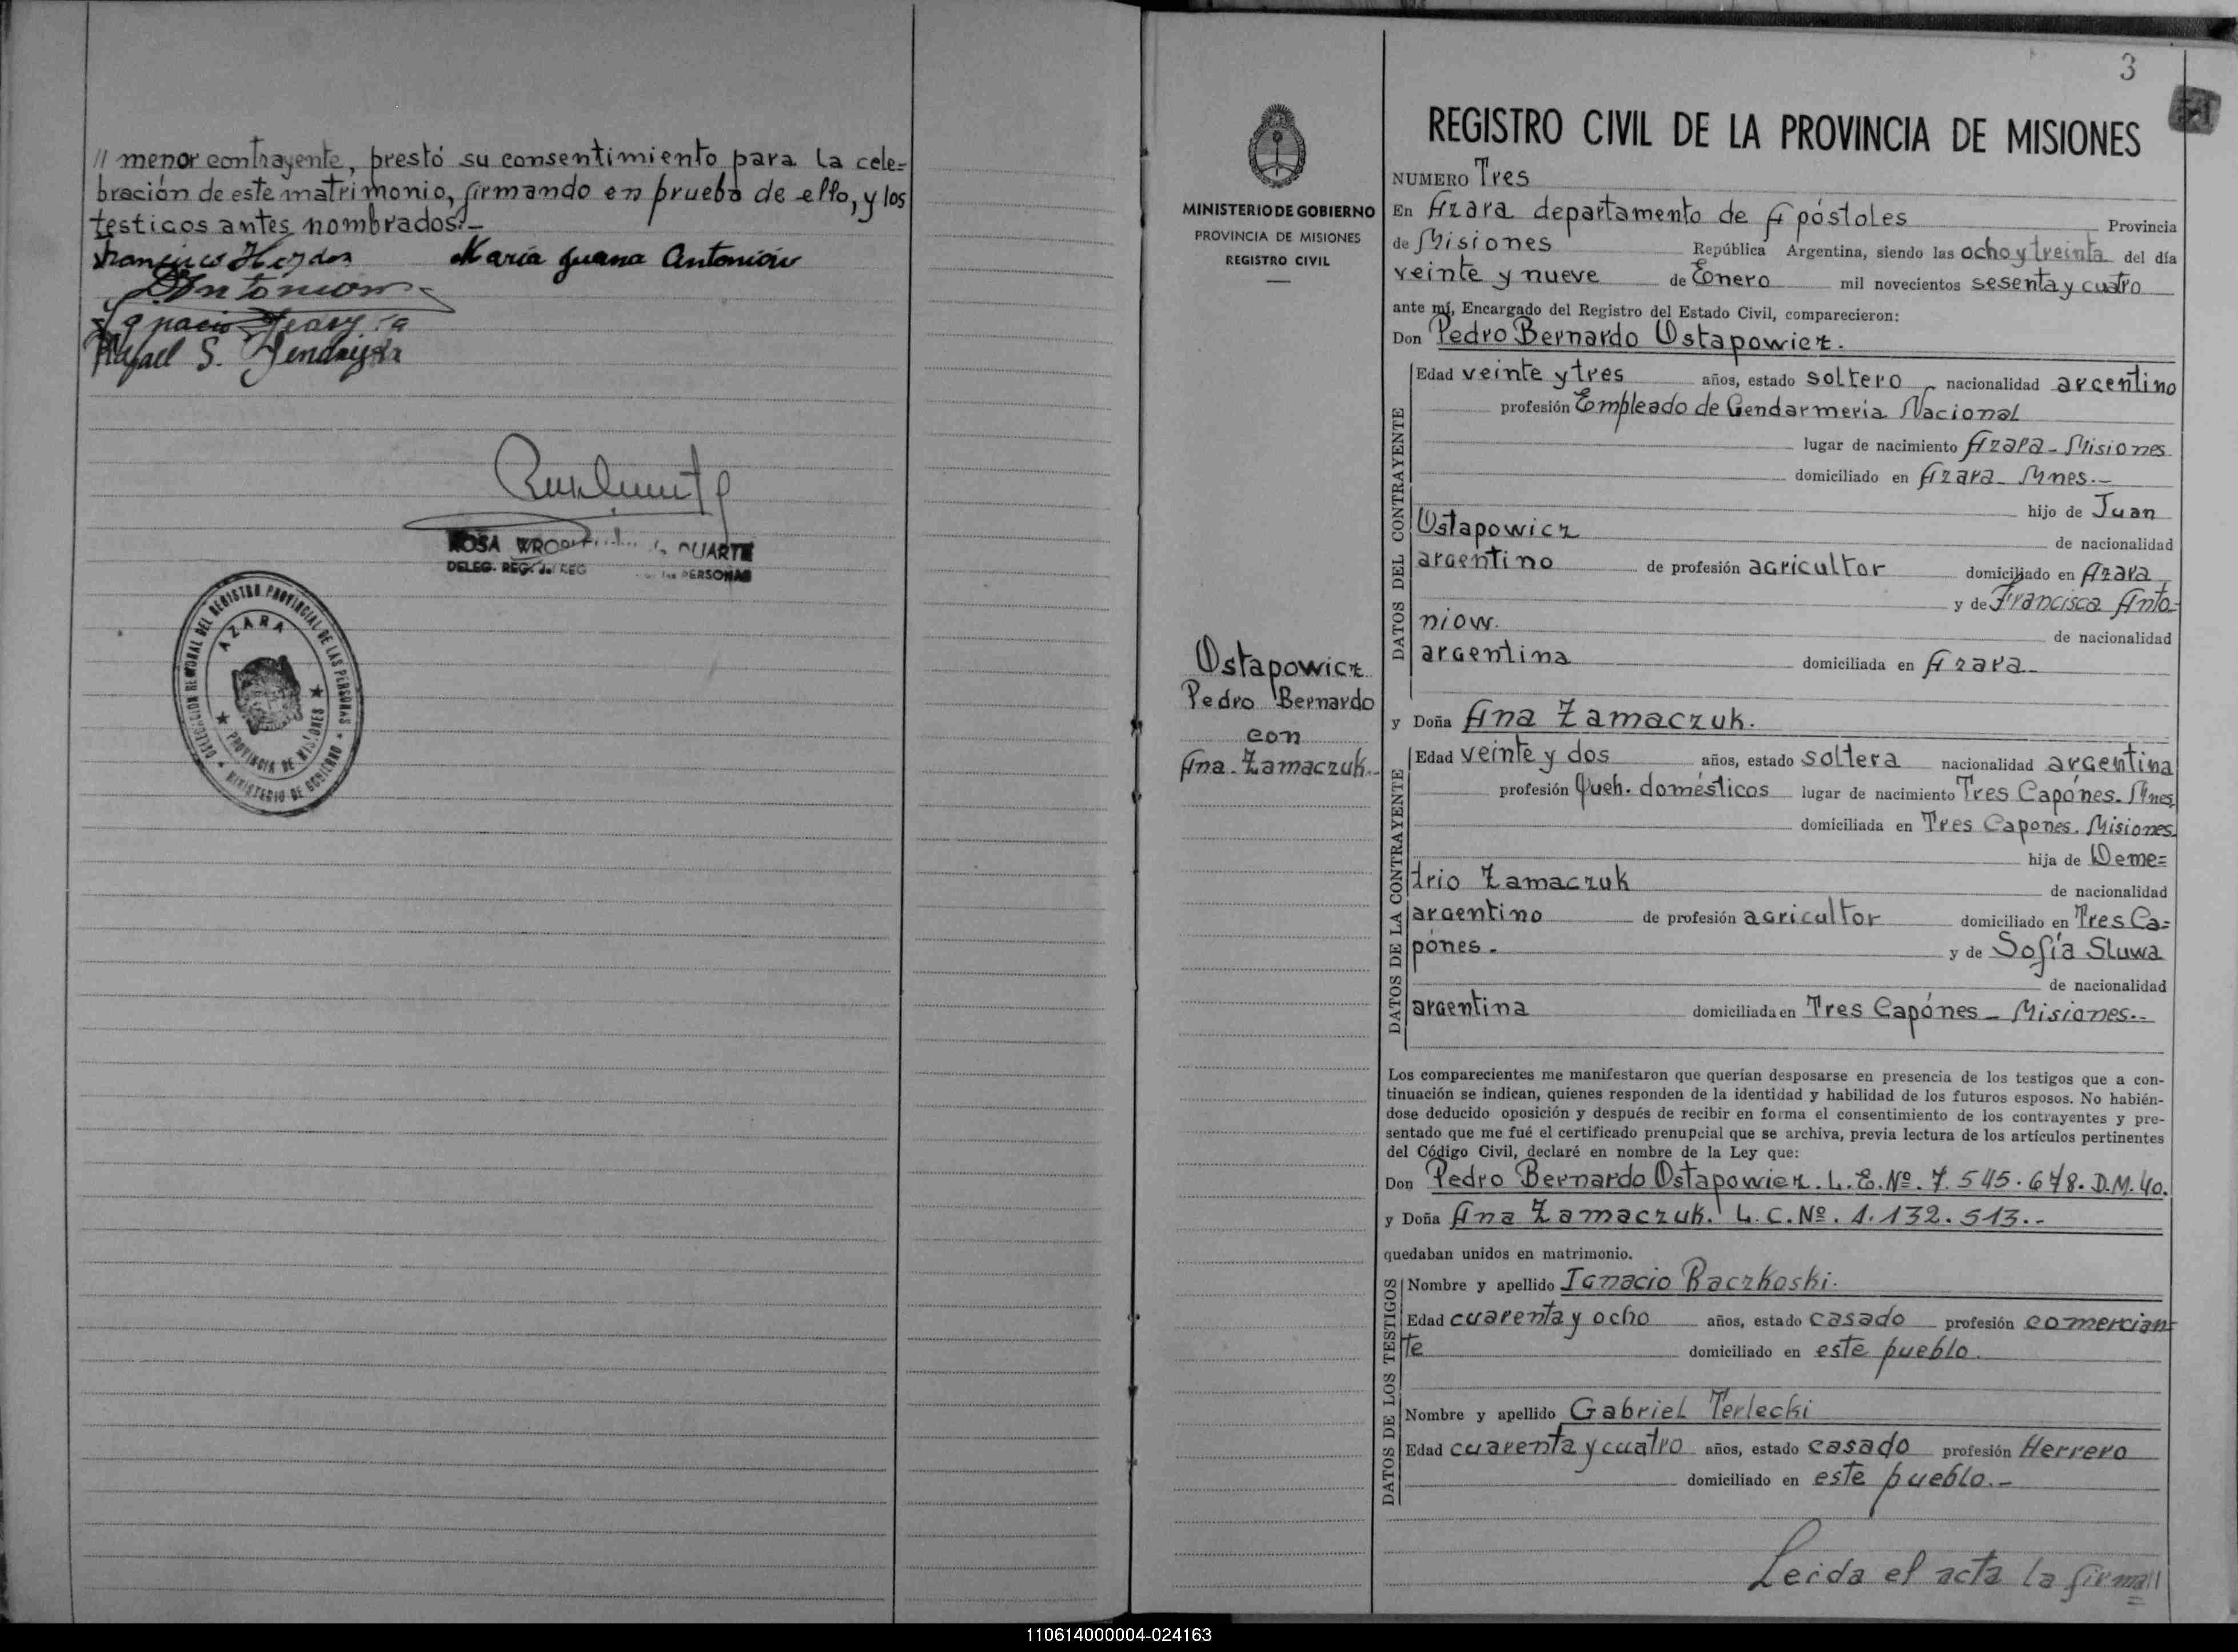 // menor contrayente, prestó su consentimiento para la cele=
bración de este matrimonio, firmando en prueba de ello, y los
testigos antes nombrados.-
María Juana Antoniow
Antoniow
Ignacio
Rafael S.
ROSA DUARTE
DELEG. REG. PERSONAS
DELEGACION REGIONAL DEL REGISTRO PROVINCIAL DE LAS PERSONAS
AZARA
PROVINCIA DE MISIONES
MINISTERIO DE GOBIERNO
3
MINISTERIO DE GOBIERNO
PROVINCIA DE MISIONES
REGISTRO CIVIL
Ostapowicz
Pedro Bernardo
con
Ana Zamaczuk.
REGISTRO CIVIL DE LA PROVINCIA DE MISIONES
NUMERO Tres
En Azara departamento de Apóstoles Provincia
de Misiones República Argentina, siendo las ocho y treinta del día
veinte y nueve de Enero mil novecientos sesenta y cuatro
ante mí, Encargado del Registro del Estado Civil, comparecieron:
Don Pedro Bernardo Ostapowicz.
DATOS DEL CONTRAYENTE
Edad veinte y tres años, estado soltero nacionalidad argentino
profesión Empleado de Gendarmeria Nacional
lugar de nacimiento Azara - Misiones
domiciliado en Azara - Mnes.-
hijo de Juan
Ostapowicz de nacionalidad
argentino de profesión agricultor domiciliado en Azara
y de Francisca Anto-
niow. de nacionalidad
argentina domiciliada en Azara
y Doña Ana Zamaczuk.
DATOS DE LA CONTRAYENTE
Edad veinte y dos años, estado soltera nacionalidad argentina
profesión Queh. domésticos lugar de nacimiento Tres Capónes. Mnes
domiciliada en Tres Capones. Misiones.
hija de Deme=
trio Zamaczuk de nacionalidad
argentino de profesión agricultor domiciliado en Tres Ca=
pónes. y de Sofía Sluwa
de nacionalidad
argentina domiciliada en Tres Capónes - Misiones.-
Los comparecientes me manifestaron que querían desposarse en presencia de los testigos que a con-
tinuación se indican, quienes responden de la identidad y habilidad de los futuros esposos. No habién-
dose deducido oposición y después de recibir en forma el consentimiento de los contrayentes y pre-
sentado que me fué el certificado prenupcial que se archiva, previa lectura de los artículos pertinentes
del Código Civil, declaré en nombre de la Ley que:
Don Pedro Bernardo Ostapowicz. L.E.Nº. 7.545.678. D.M. 40.
y Doña Ana Zamaczuk. L.C.Nº. 1.132.513.-
quedaban unidos en matrimonio.
DATOS DE LOS TESTIGOS
Nombre y apellido Ignacio Raczkoski.
Edad cuarenta y ocho años, estado casado profesión comercian
te domiciliado en este pueblo.
Nombre y apellido Gabriel Terlecki
Edad cuarenta y cuatro años, estado casado profesión Herrero
domiciliado en este pueblo.-
Leida el acta la firma//
110614000004-024163